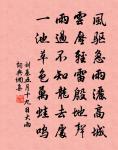 風驅急雨灑高城
雲壓輕雷殷地聲
雨過不知龍去處
一池草色萬蛙鳴
劉基五月十九日大雨
詞典網集